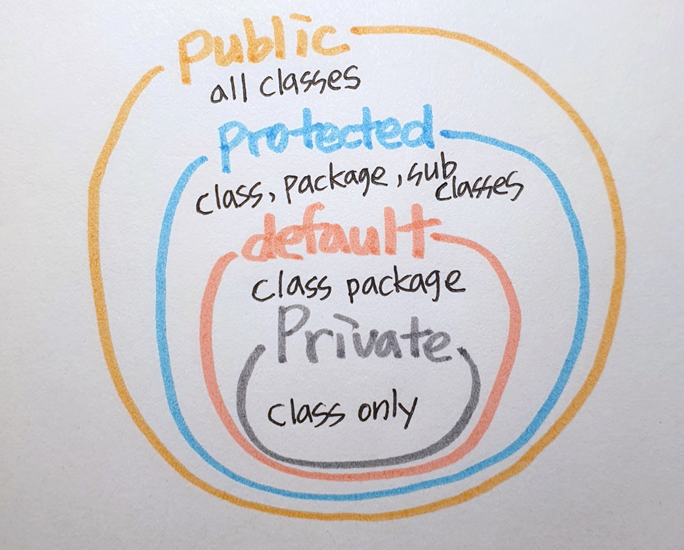 Public
all classes
Protected
class, package, sub classes
default
class package
Private
class only